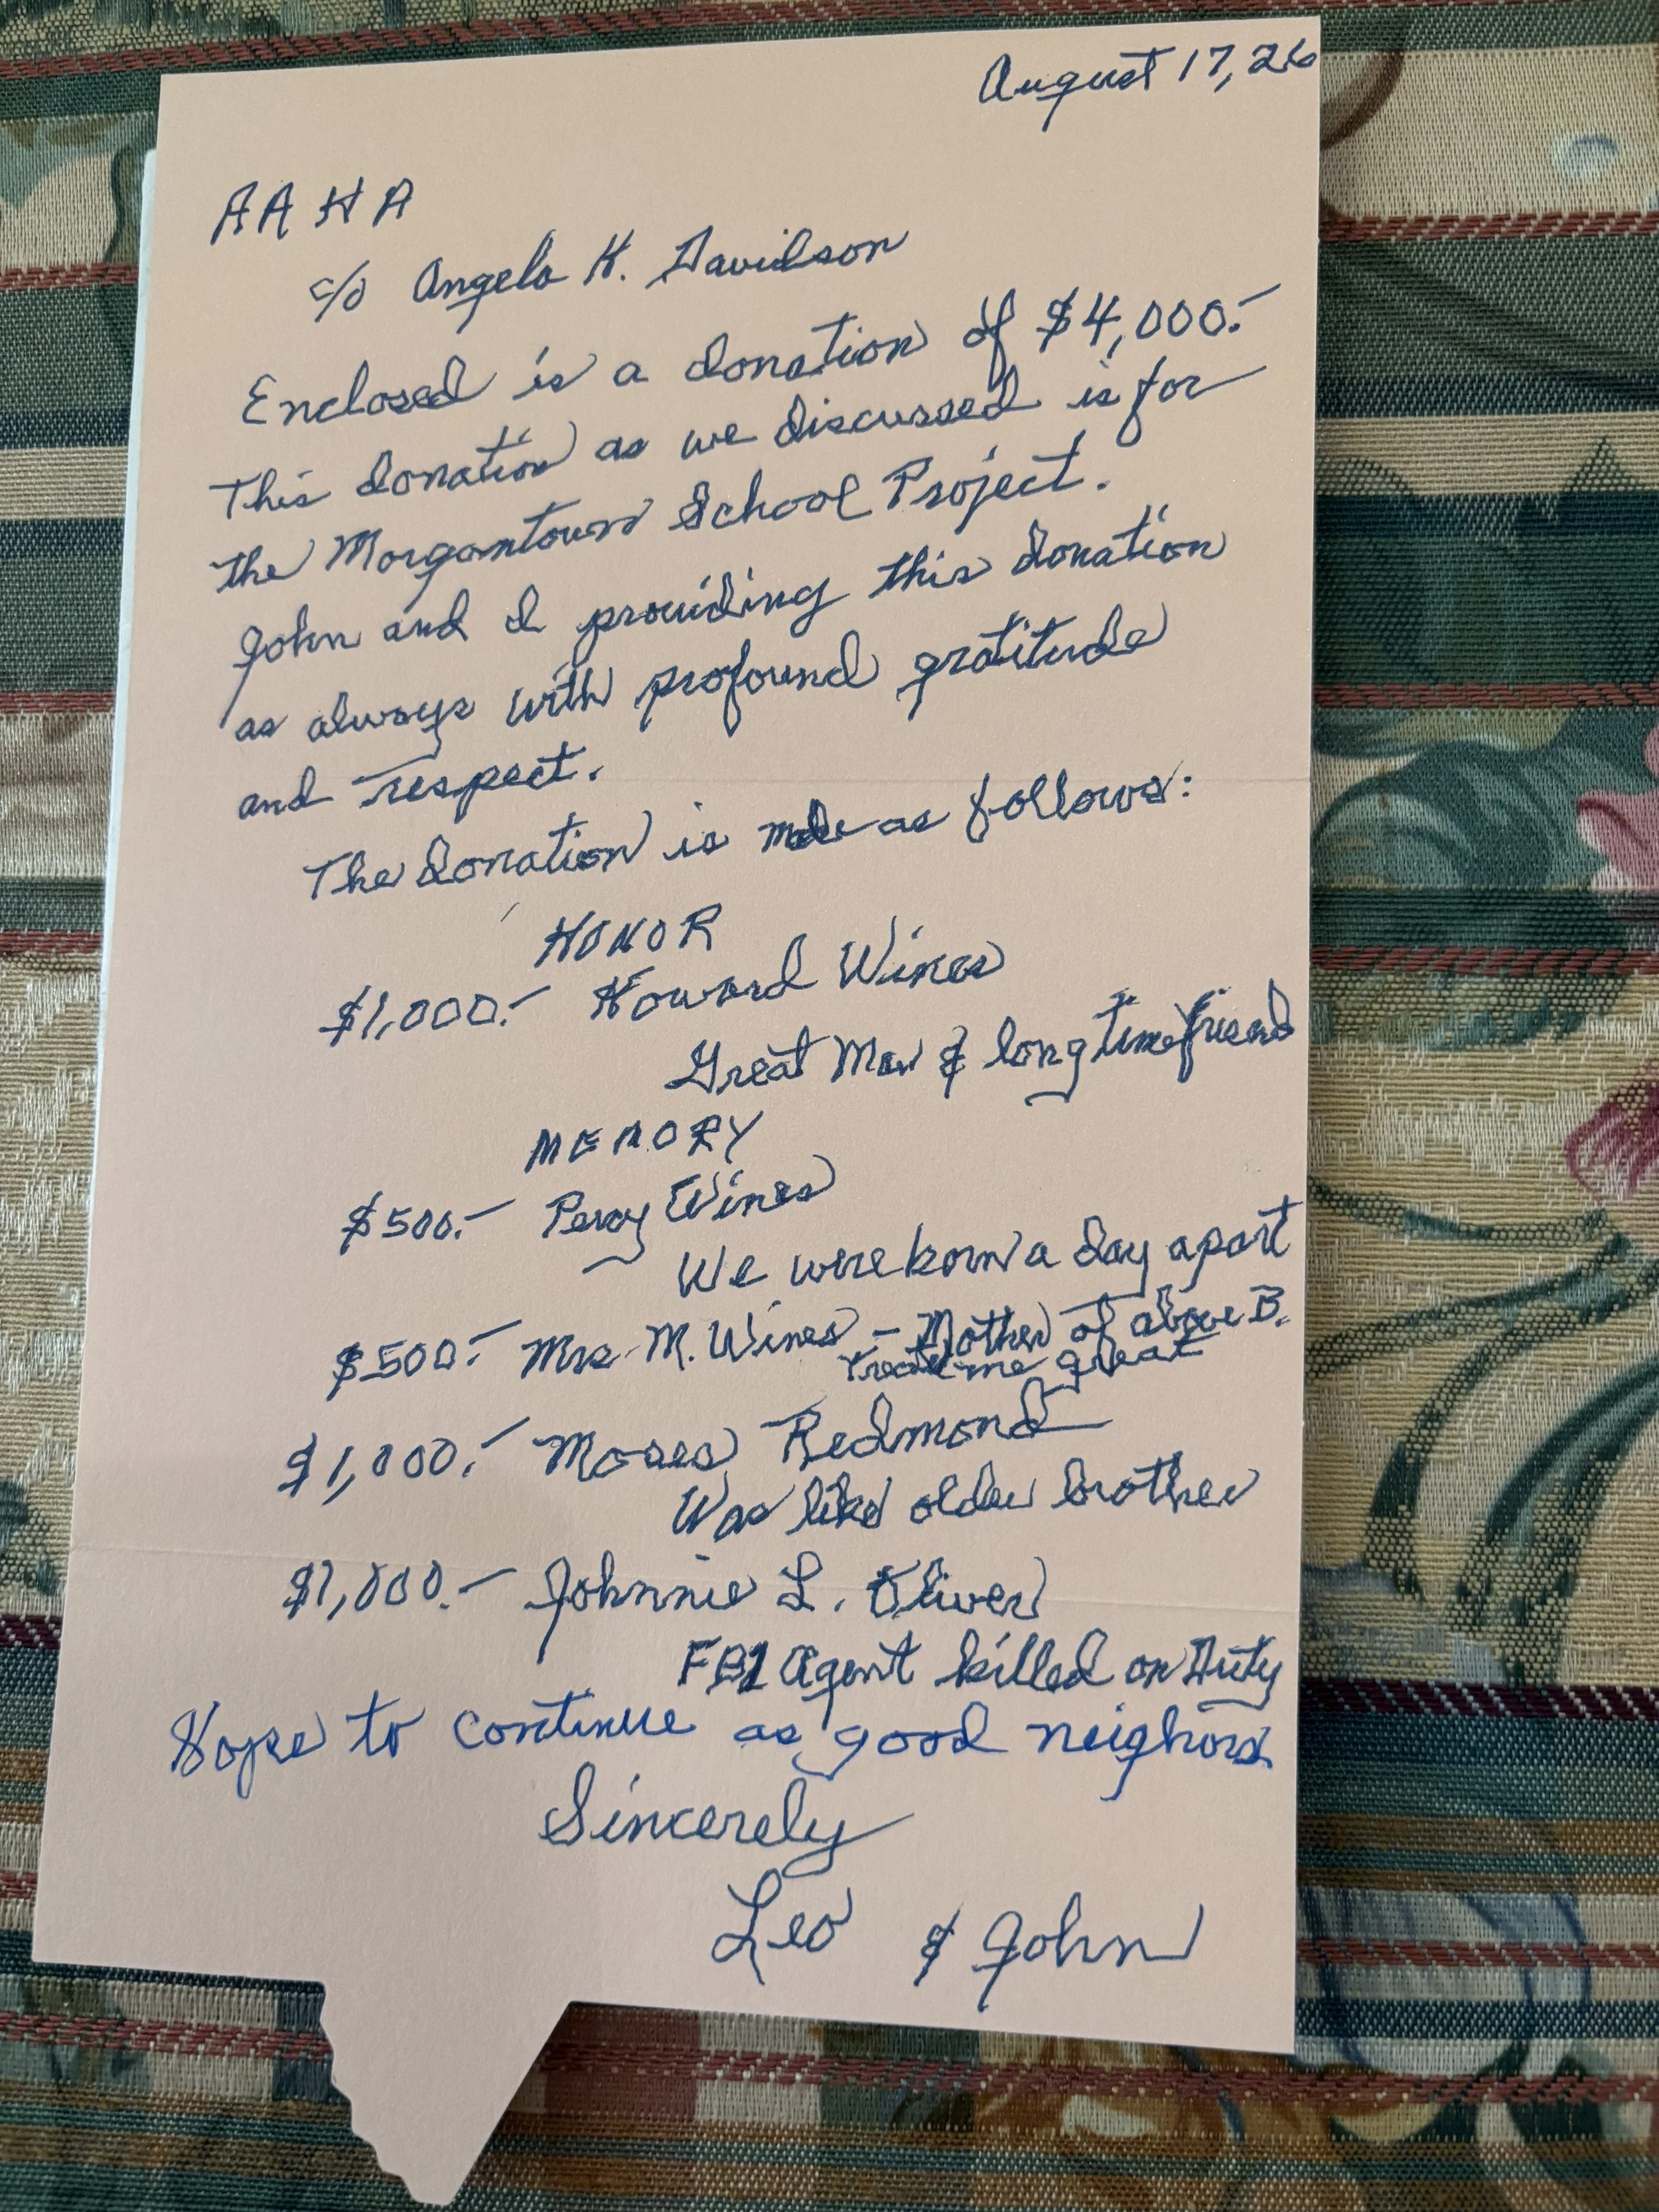 August 17, 26
AAHA
c/o Angela K. Davidson
Enclosed is a donation of $4,000.-
This donation as we discussed is for
the Morgantown School Project.
John and I providing this donation
as always with profound gratitude
and respect.
The donation is made as follows:
HONOR
$1,000.- Howard Wines
Great Man & long time friend
MEMORY
$500.- Percy Wines
We were born a day apart
$500.- Mrs. M. Wines - Mother of above B.
Treated me great
$1,000.- Moses Redmond
Was like older brother
$1,000.- Johnnie L. Oliver
FBI Agent killed on Duty
Hope to continue as good neighbors
Sincerely
Leo & John